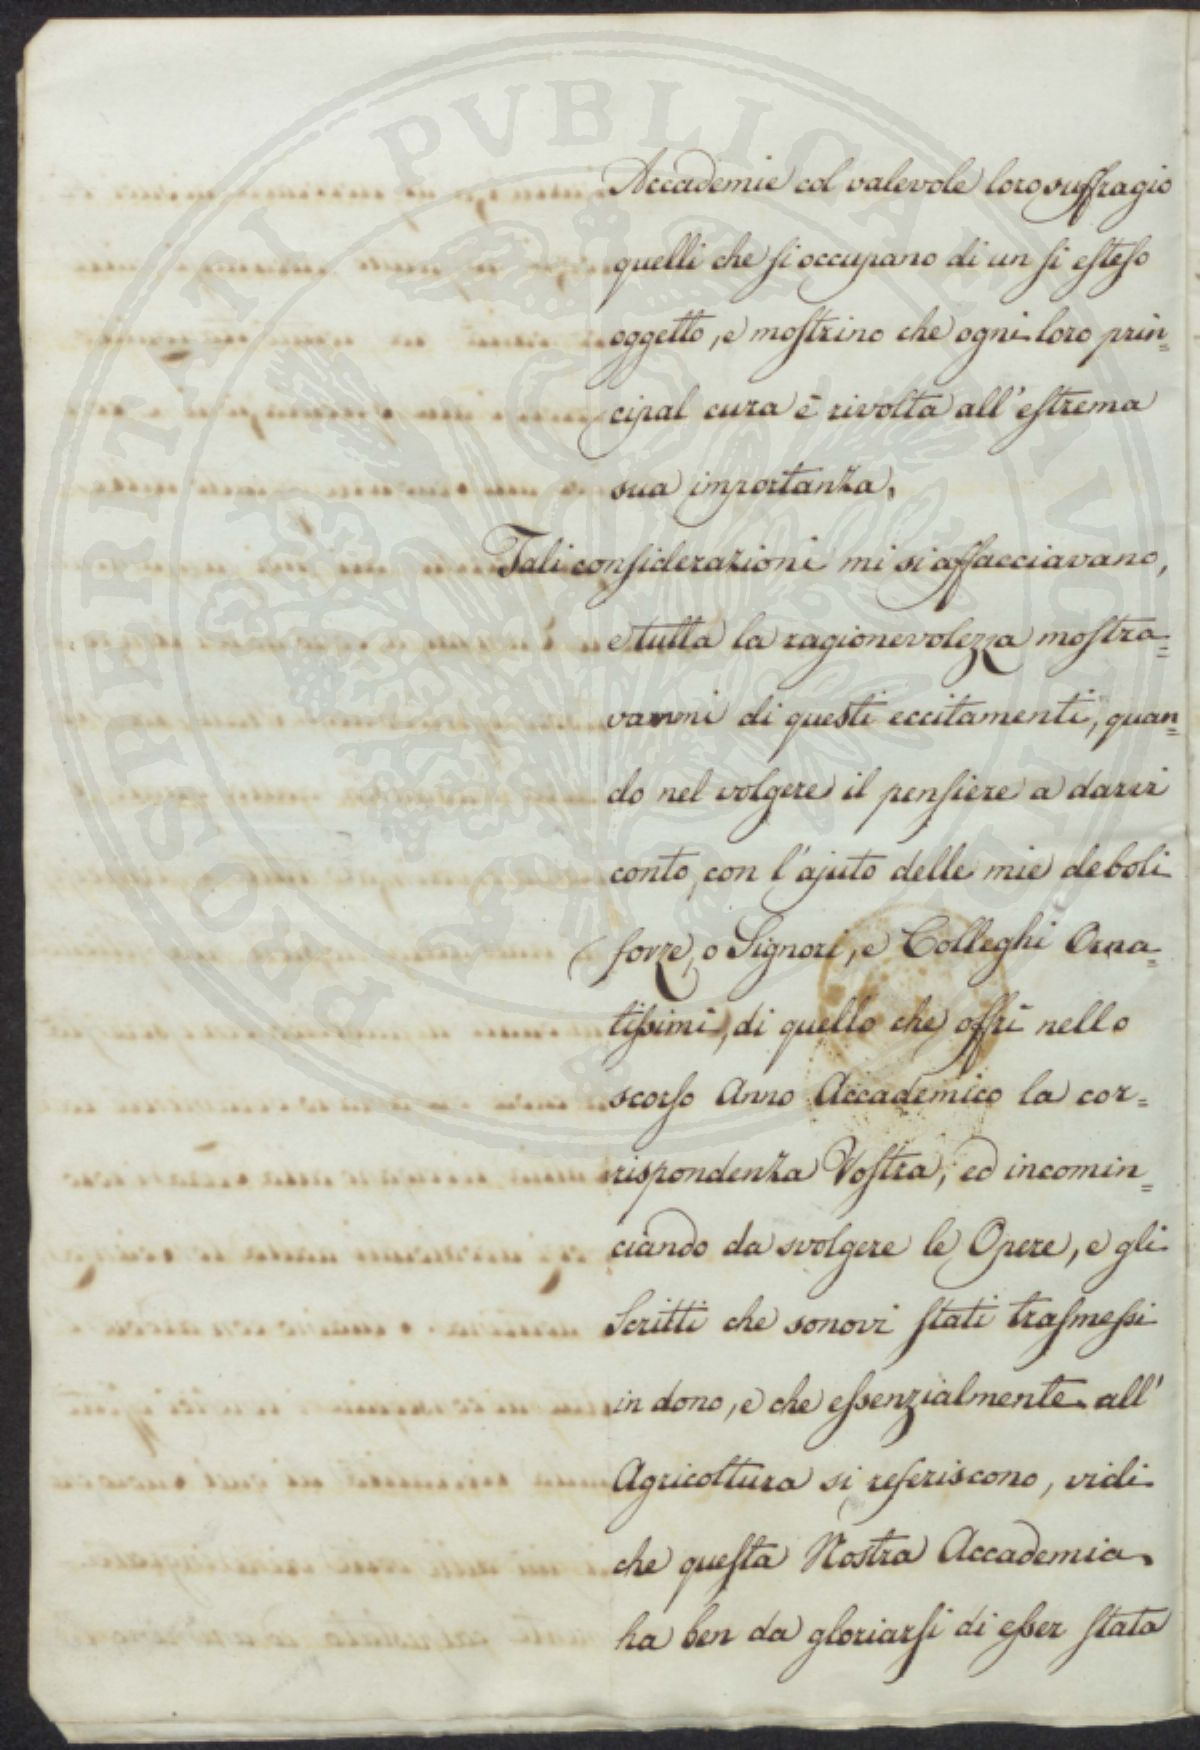 Accademie col valevole loro suffragio
quelli che si occupano di un si esteso
oggetto, e mostrino che ogni loro prin=
cipal cura è rivolta all'estrema
sua importanza.
Tali considerazioni mi si affacciavano,
e tutta la ragionevolezza mostra=
vanmi di questi eccitamenti, quan=
do nel volgere il pensiere a darvi
conto, con l'ajuto delle mie deboli
forze, o Signori, e Colleghi Orna=
tissimi, di quello che offrì nello
scorso Anno Accademico la cor=
rispondenza Vostra, ed incomin=
ciando da svolgere le Opere, e gli
Scritti che sonovi stati trasmessi
in dono, e che essenzialmente all'
Agricoltura si referiscono, vidi
che questa Nostra Accademia
ha ben da gloriarsi di esser stata
PROSPERITATI PVBLICAE AVGENDAE